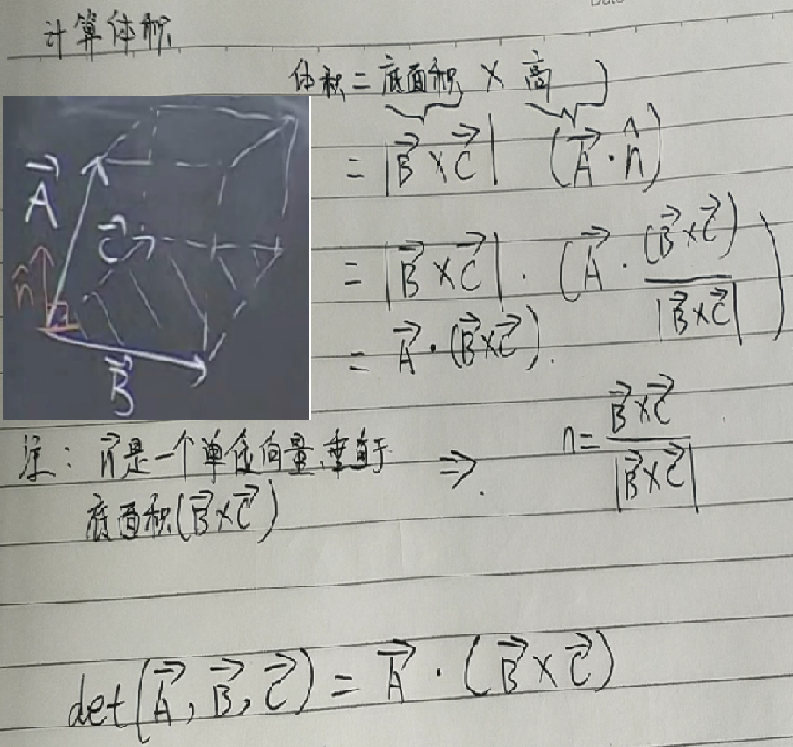 计算体积
体积 = 底面积 × 高
= |B⃗ × C⃗| (A⃗ · n̂)
= |B⃗ × C⃗| · (A⃗ · (B⃗ × C⃗) / |B⃗ × C⃗|)
= A⃗ · (B⃗ × C⃗).
A⃗
C⃗
n̂
B⃗
注: n⃗ 是一个单位向量, 垂直于 ⇒ n = B⃗ × C⃗ / |B⃗ × C⃗|
底面积 (B⃗ × C⃗)
det(A⃗, B⃗, C⃗) = A⃗ · (B⃗ × C⃗)